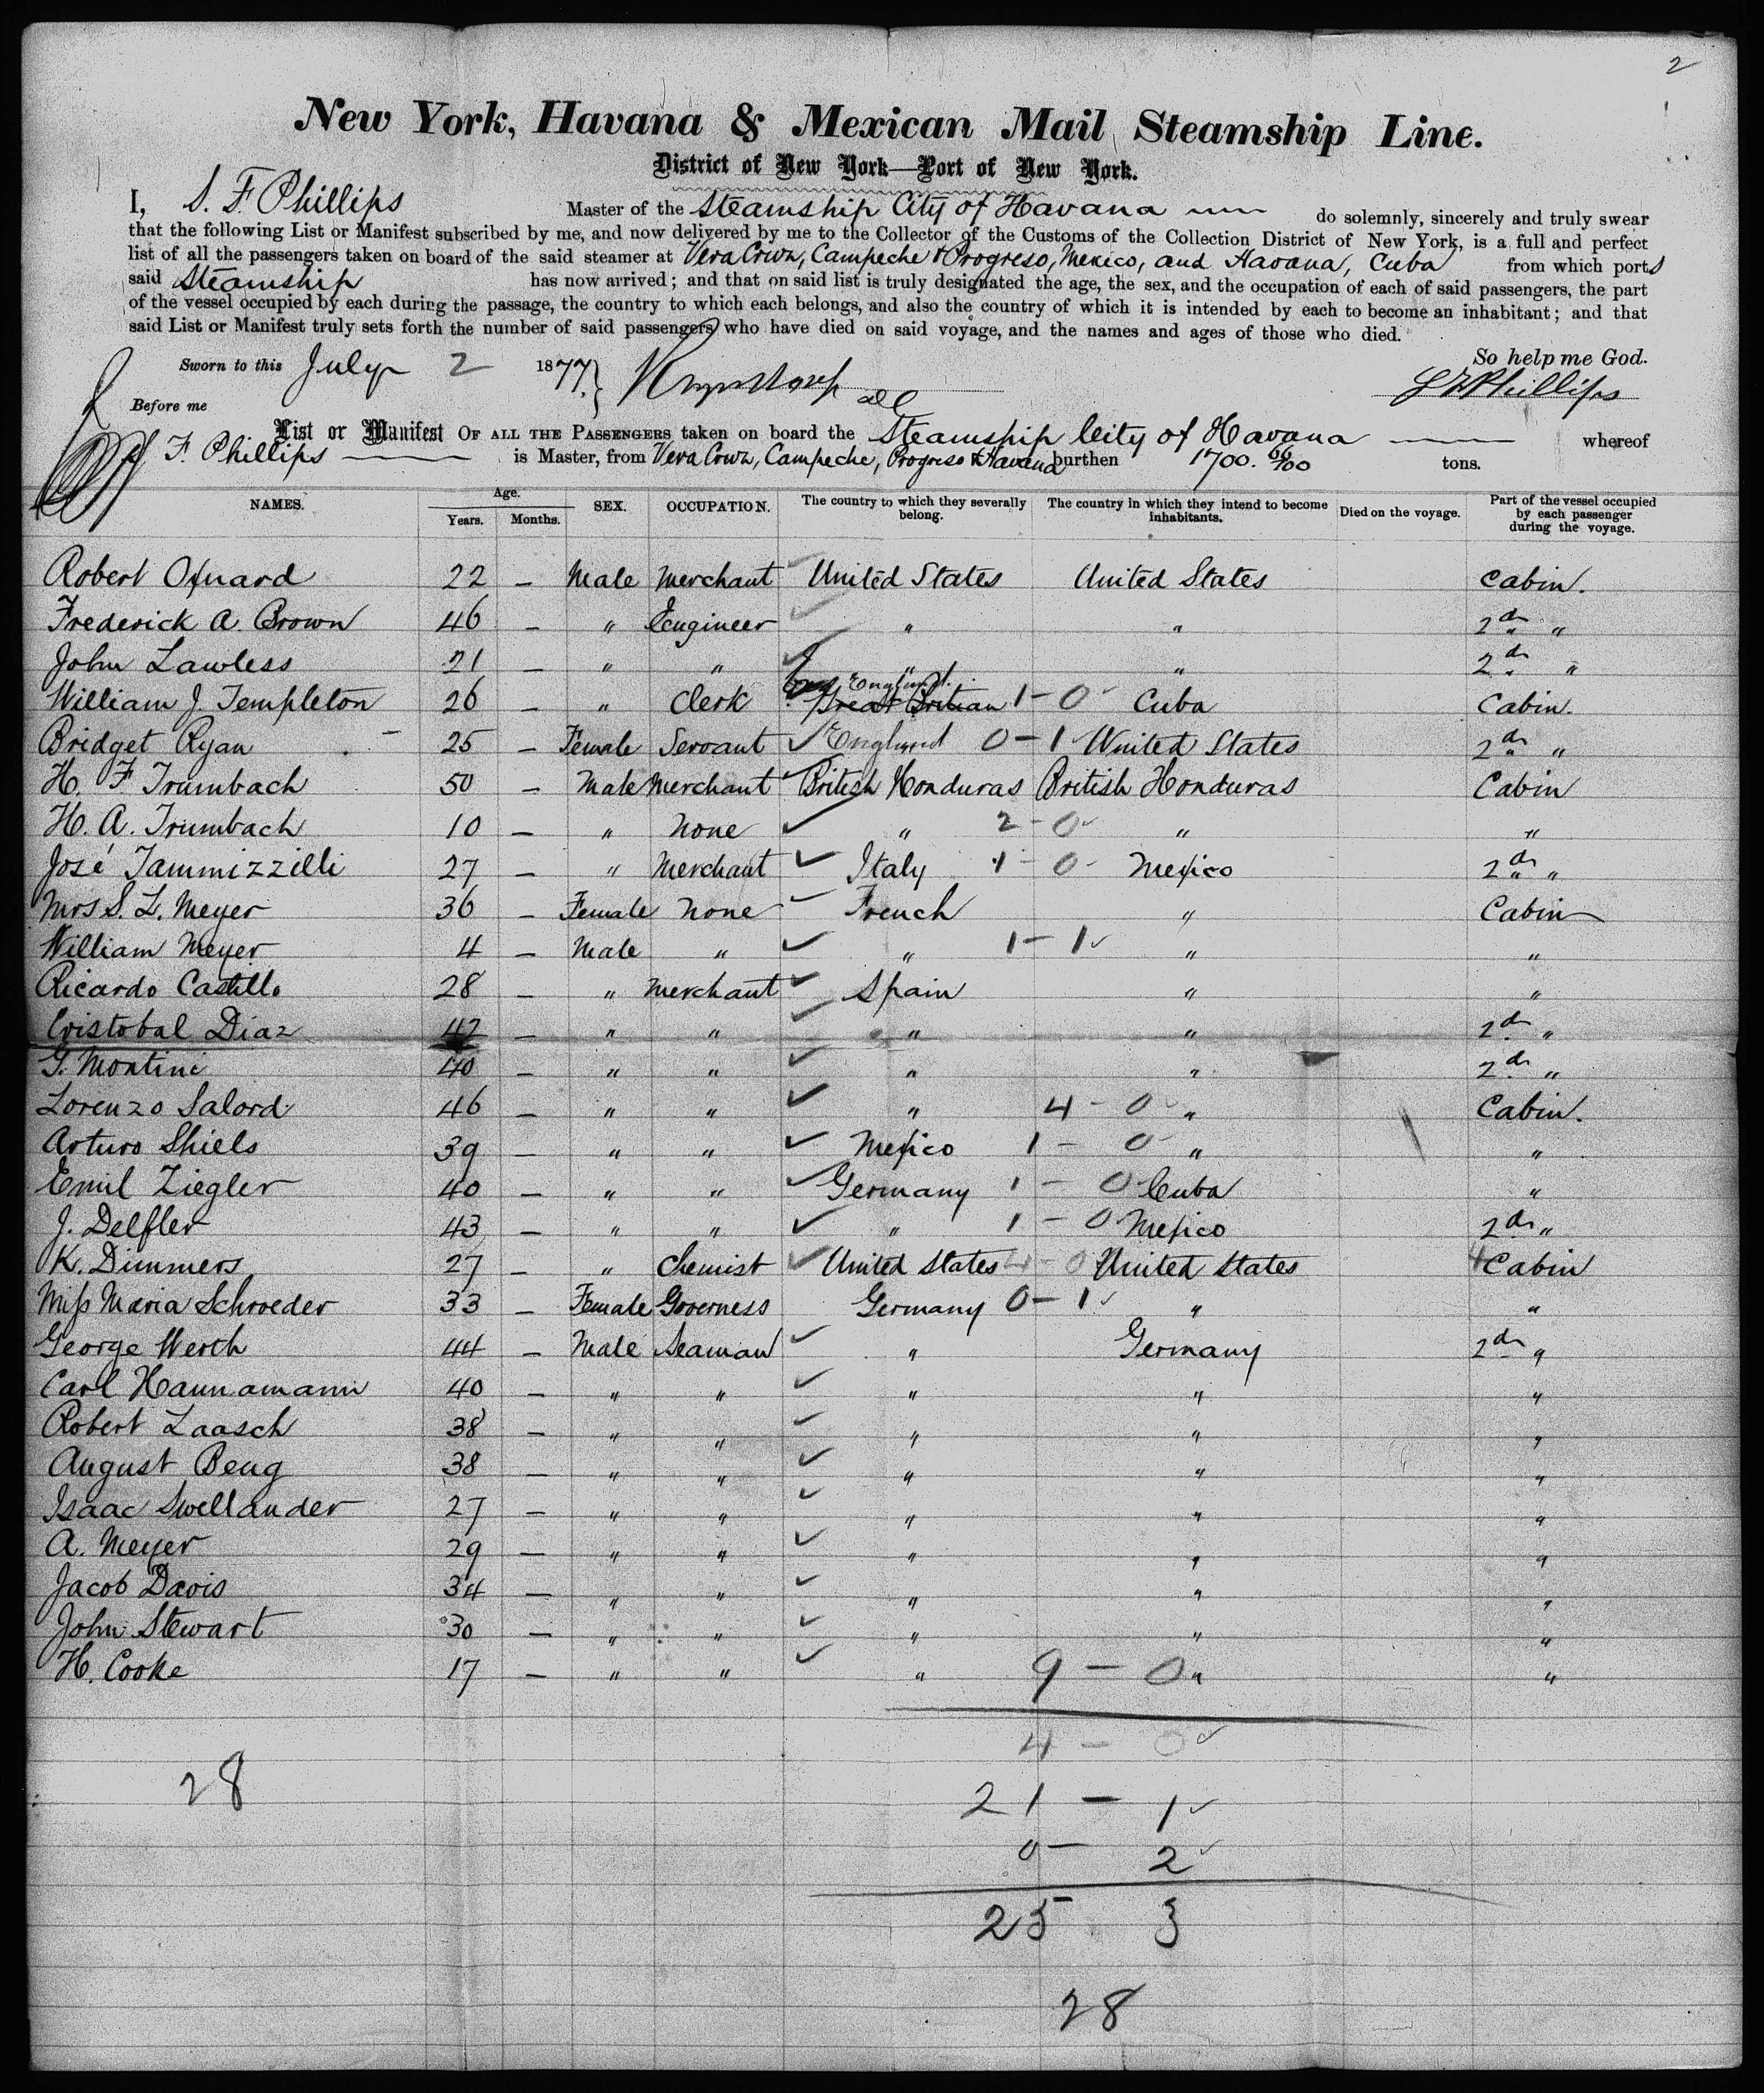 2
New York, Havana & Mexican Mail Steamship Line.
District of New York—Port of New York.
I, S. F. Phillips Master of the Steamship City of Havana do solemnly, sincerely and truly swear
that the following List or Manifest subscribed by me, and now delivered by me to the Collector of the Customs of the Collection District of New York, is a full and perfect
list of all the passengers taken on board of the said steamer at Vera Cruz, Campeche & Progreso, Mexico, and Havana, Cuba from which ports
said Steamship has now arrived; and that on said list is truly designated the age, the sex, and the occupation of each of said passengers, the part
of the vessel occupied by each during the passage, the country to which each belongs, and also the country of which it is intended by each to become an inhabitant; and that
said List or Manifest truly sets forth the number of said passengers who have died on said voyage, and the names and ages of those who died.
So help me God.
Sworn to this July 2 1877.
S F Phillips
Before me
List or Manifest OF ALL THE PASSENGERS taken on board the Steamship City of Havana whereof
F. Phillips is Master, from Vera Cruz, Campeche, Progreso & Havana burthen 1700. 66/100 tons.
NAMES. Age. Years. Months. SEX. OCCUPATION. The country to which they severally belong. The country in which they intend to become inhabitants. Died on the voyage. Part of the vessel occupied by each passenger during the voyage.
Robert Oxnard 22 — Male Merchant United States United States Cabin.
Frederick A. Brown 46 — " Engineer " " 2d "
John Lawless 21 — " " " " 2d "
William J. Templeton 26 — " Clerk England. Great Britian 1 - 0 Cuba Cabin.
Bridget Ryan 25 — Female Servant England 0 - 1 United States 2d "
H. F Trumbach 50 — Male Merchant British Honduras British Honduras Cabin
H. A. Trumbach 10 — " None " 2 - 0 " "
José Tammizzilli 27 — " Merchant Italy 1 - 0 Mexico 2d "
Mrs S. L. Meyer 36 — Female None French " Cabin
William Meyer 4 — Male " " 1 - 1 " "
Ricardo Castillo 28 — " Merchant Spain " "
Cristobal Diaz 42 — " " " " 2d "
G. Montini 40 — " " " " 2d "
Lorenzo Salord 46 — " " " 4 - 0 " Cabin.
Arturo Shiels 39 — " " Mexico 1 - 0 " "
Emil Ziegler 40 — " " Germany 1 - 0 Cuba "
J. Delfler 43 — " " " 1 - 0 Mexico 2d "
K. Dimmers 27 — " Chemist United States 4 - 0 United States Cabin
Miss Maria Schroeder 33 — Female Governess Germany 0 - 1 " "
George Werth 44 — Male Seaman " Germany 2d "
Carl Hannamann 40 — " " " " "
Robert Laasch 38 — " " " " "
August Beug 38 — " " " " "
Isaac Swellander 27 — " " " " "
A. Meyer 29 — " " " " "
Jacob Davis 34 — " " " " "
John Stewart 30 — " " " " "
H. Cooke 17 — " " " 9 - 0 " "
4 - 0
28
21 - 1
0 - 2
25 3
28